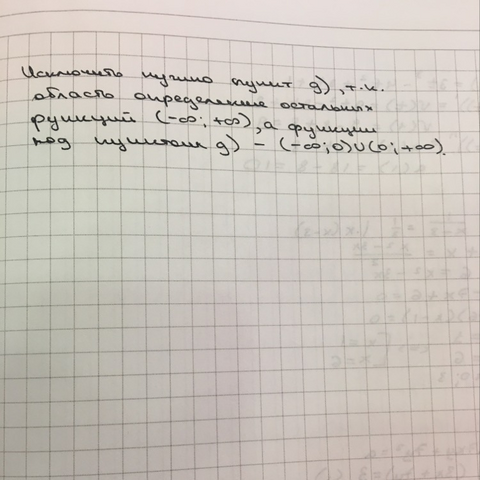 Исключить нужно пункт д), т.к.
область определение остальных
функций (-∞; +∞), а функции
под пунктом д) - (-∞;0)∪(0;+∞).